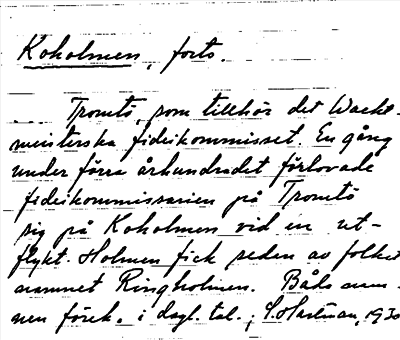 Koholmen, forts.
Tromtö, som tillhör det Wacht-
meisterska fideikommisset. En gång
under förra århundradet förlovade
fideikommissarien på Tromtö
sig på Koholmen vid en ut-
flykt. Holmen fick sedan av folket
namnet Ringholmen. Båda nam-
nen förek. i dagl. tal.; S. Hartman, 1930